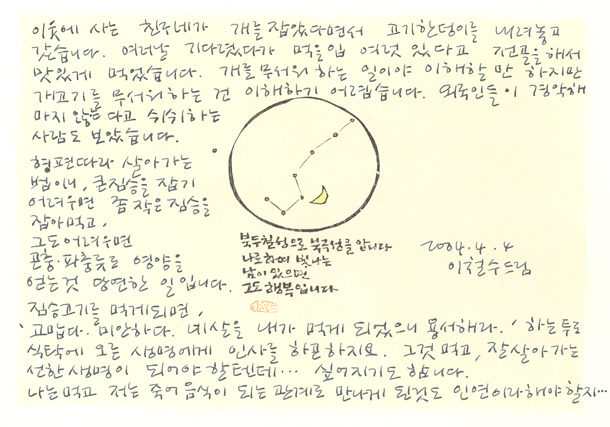 이웃에 사는 친구네가 개를 잡았다면서 고기 한덩이를 내려놓고
갔습니다. 여러날 기다렸다가 먹을 입 여럿 있다고 전골을 해서
맛있게 먹었습니다. 개를 무서워 하는 일이야 이해할 만 하지만
개고기를 무서워하는 건 이해하기 어렵습니다. 외국인들이 경악해
마지 않는다고 쉬쉬하는
사람도 보았습니다.
형편따라 살아가는
법이니, 큰짐승을 잡기
어려우면 좀 작은 짐승을
잡아먹고,
그도 어려우면
곤충·파충류로 영양을
얻는것 당연한 일입니다.
짐승고기를 먹게되면,
'고맙다. 미안하다. 네 살을 내가 먹게 되었으니 용서해라.' 하는 투로
식탁에 오른 생명에게 인사를 하곤하지요. 그것 먹고, 잘 살아가는
선한 생명이 되어야 할텐데… 싶어지기도 합니다.
나는 먹고 저는 죽어 음식이 되는 관계로 만나게 된것도 인연이라 해야 할지…
북두칠성으로 북극성을 압니다
나로 하여 빛나는
남이 있으면
그도 행복입니다
2004. 4. 4
이철수 드림